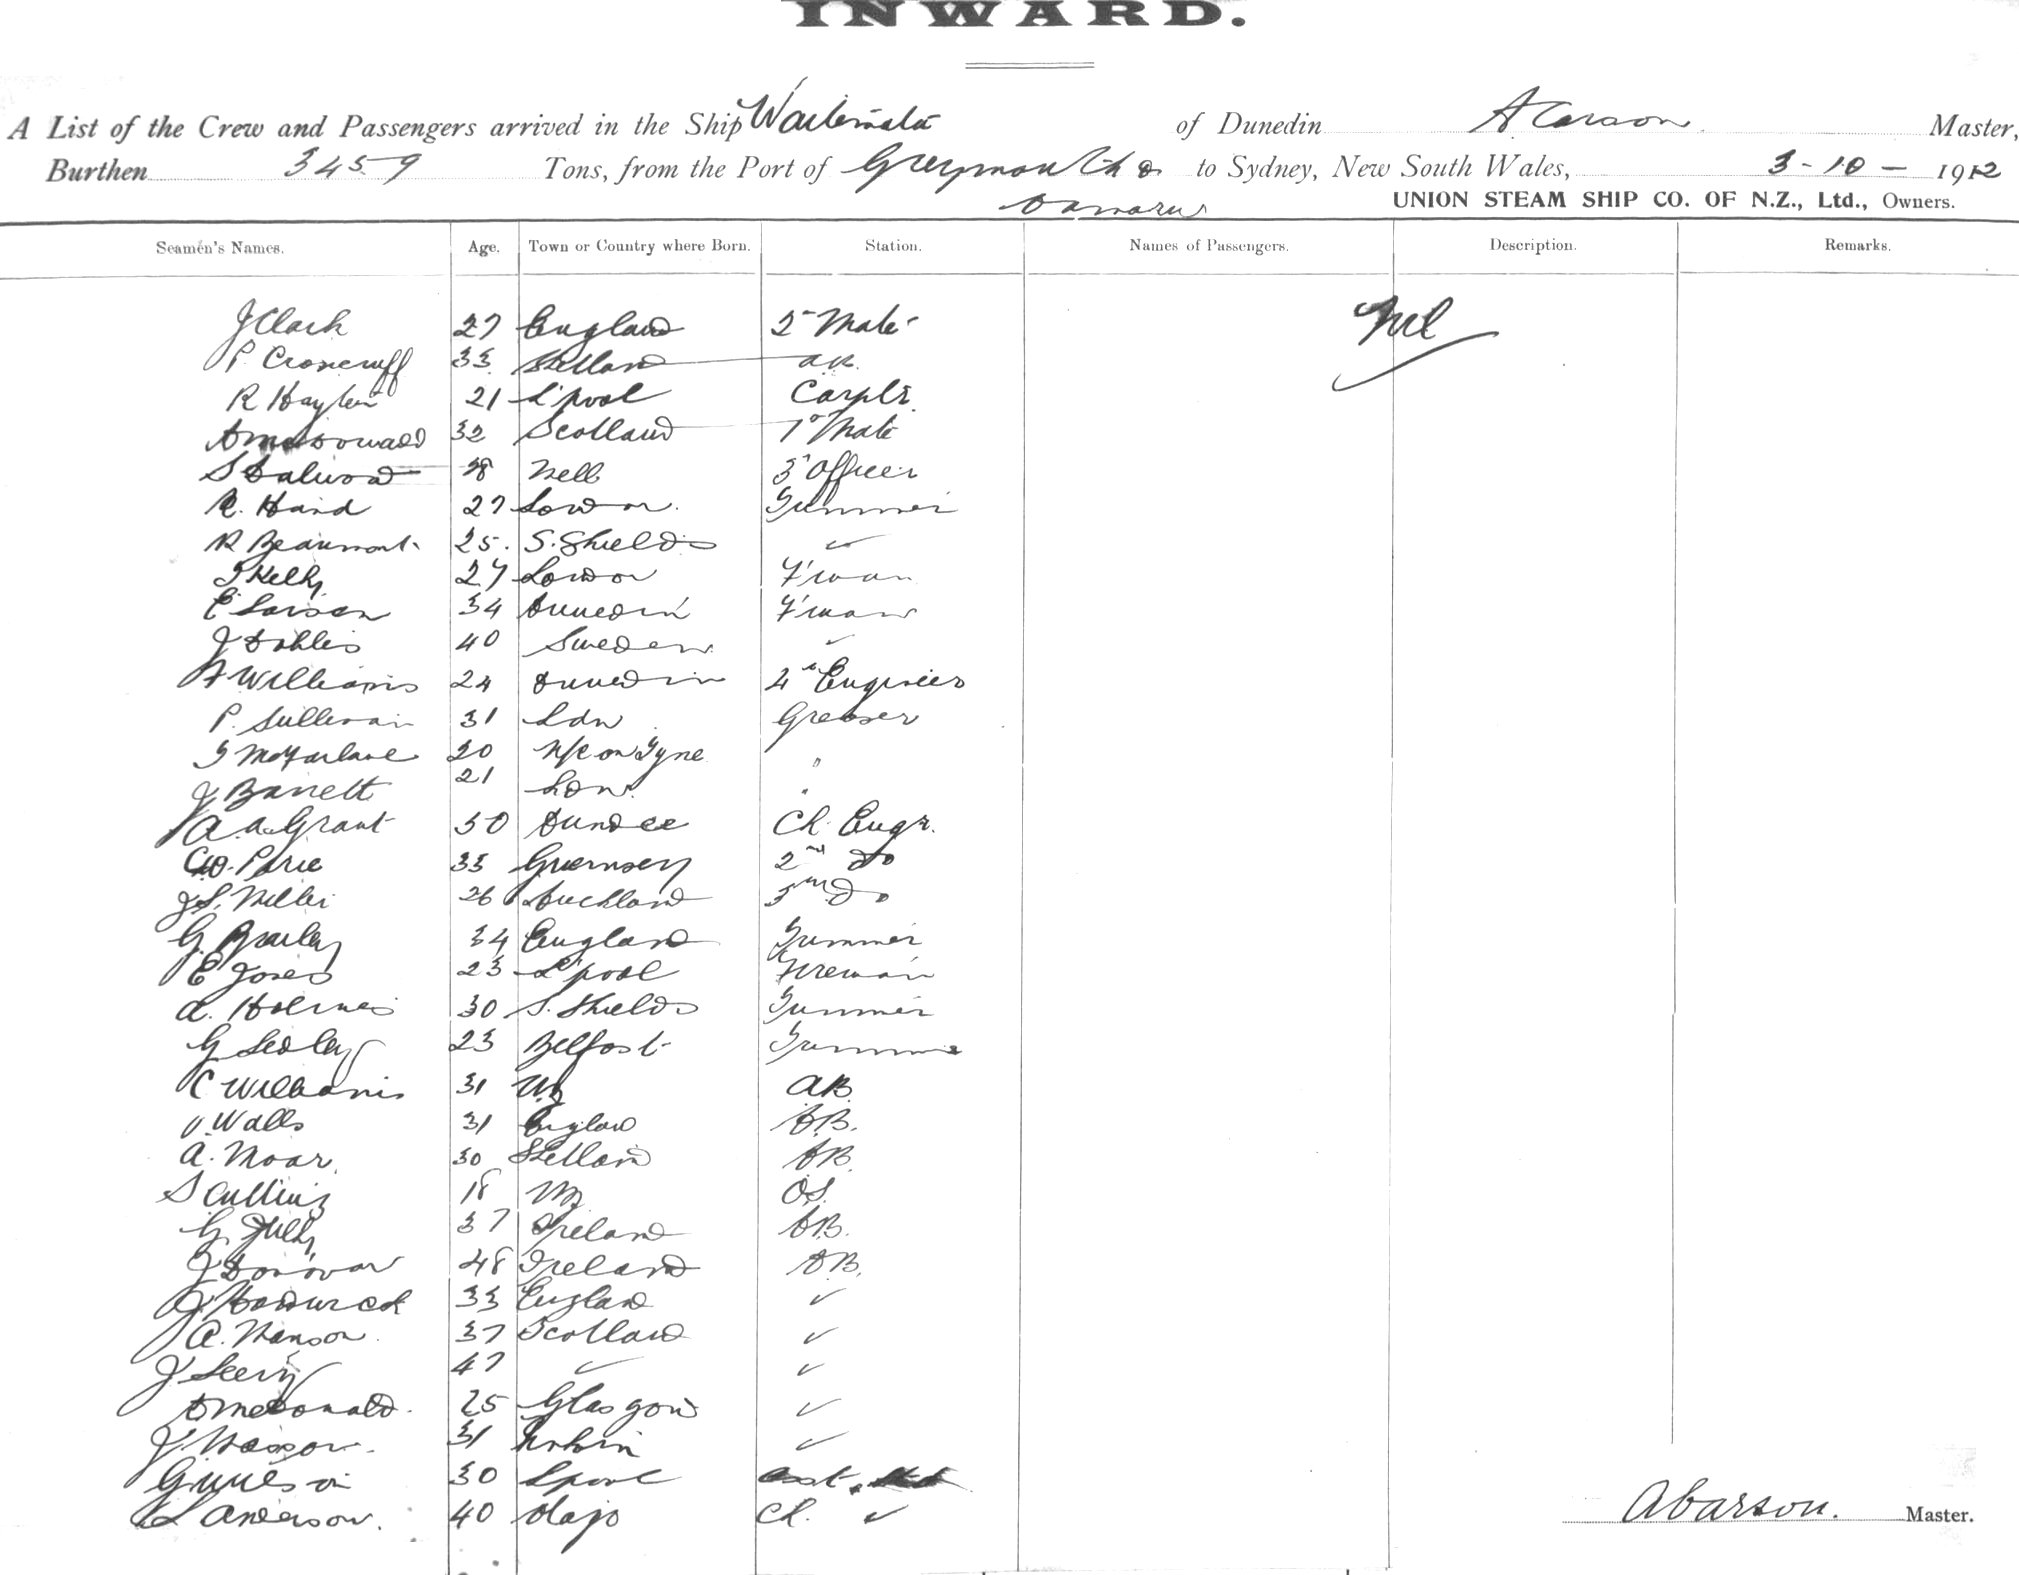 INWARD.
A List of the Crew and Passengers arrived in the Ship Waitemata of Dunedin A Carson Master,
Burthen 3459 Tons, from the Port of Greymouth & to Sydney, New South Wales, 3-10-1912
Oamaru UNION STEAM SHIP CO. OF N.Z., Ltd., Owners.
Seamen's Names. Age. Town or Country where Born. Station. Names of Passengers. Description. Remarks.
J Clark 27 England 2 Mate Nil
P. 33 Shetland AB.
R 21 L'pool Carptr.
32 Scotland 1 Mate
S 28 3 Officer
R. Hand 27 London Trimmer
R Beaumont 25. S. Shields ✓
Kelly 27 London F'man
E Larsen 34 Dunedin F'man
J Dahlis 40 Sweden ✓
Williams 24 Dunedin 4th Engineer
P. Sullivan 31 Ldn Greaser
McFarlane 20 N/C on Tyne "
J Barrett 21 Lon. "
A. A. Grant 50 Dundee Ch. Engr.
33 Guernsey 2nd Do
J S. Miller 26 Auckland 3rd Do
G. 34 England Trimmer
E Jones 23 L'pool Fireman
A. Holmes 30 S. Shields Trimmer
G Sedley 23 Belfast Trimmer
C Williams 31 NZ AB.
Walls 31 England AB.
A. Moar. 30 Shetland AB.
S Cullins 18 NZ OS.
G. 37 Ireland AB.
J Donovan 48 Ireland AB.
J 33 England ✓
A. Manson. 37 Scotland ✓
J 47 ✓ ✓
D McDonald. 25 Glasgow ✓
J 31 ✓
30 L'pool asst.
Anderson. 40 Ch. ✓
A Carson. Master.